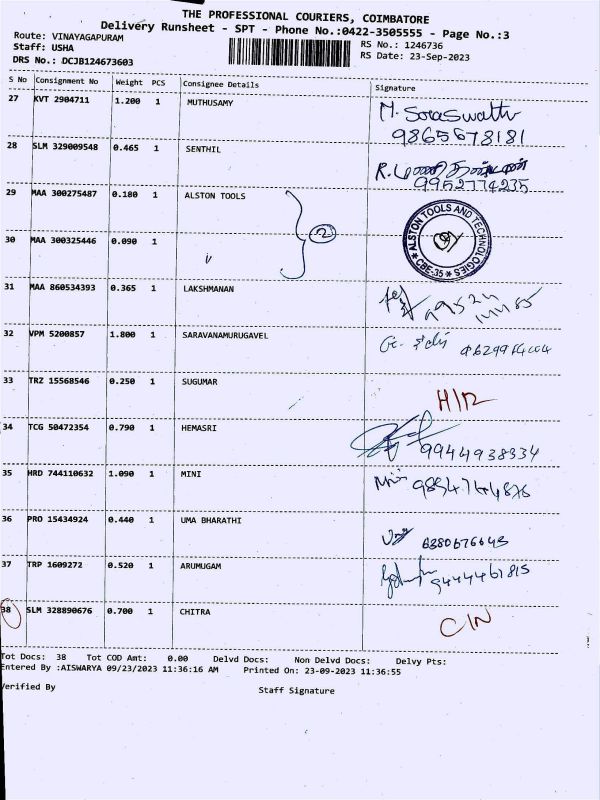 THE PROFESSIONAL COURIERS, COIMBATORE
Delivery Runsheet - SPT - Phone No.:0422-3505555 - Page No.:3
Route: VINAYAGAPURAM
RS No.: 1246736
Staff: USHA
RS Date: 23-Sep-2023
DRS No.: DCJB124673603
S No Consignment No Weight PCS Consignee Details Signature
27 KVT 2904711 1.200 1 MUTHUSAMY M. Saraswathi
9865678181
28 SLM 329009548 0.465 1 SENTHIL
9952774235
29 MAA 300275487 0.180 1 ALSTON TOOLS
2
ALSTON TOOLS AND TECHNOLOGIES * CBE-35 *
30 MAA 300325446 0.090 1
31 MAA 860534393 0.365 1 LAKSHMANAN
32 VPM 5200857 1.800 1 SARAVANAMURUGAVEL
33 TRZ 15568546 0.250 1 SUGUMAR
34 TCG 50472354 0.790 1 HEMASRI 9944938334
35 HRD 744110632 1.090 1 MINI Mini
36 PRO 15434924 0.440 1 UMA BHARATHI 6380676645
37 TRP 1609272 0.520 1 ARUMUGAM 9444461815
38 SLM 328890676 0.700 1 CHITRA C/N
Tot Docs: 38 Tot COD Amt: 0.00 Delvd Docs: Non Delvd Docs: Delvy Pts:
Entered By :AISWARYA 09/23/2023 11:36:16 AM Printed On: 23-09-2023 11:36:55
Verified By Staff Signature